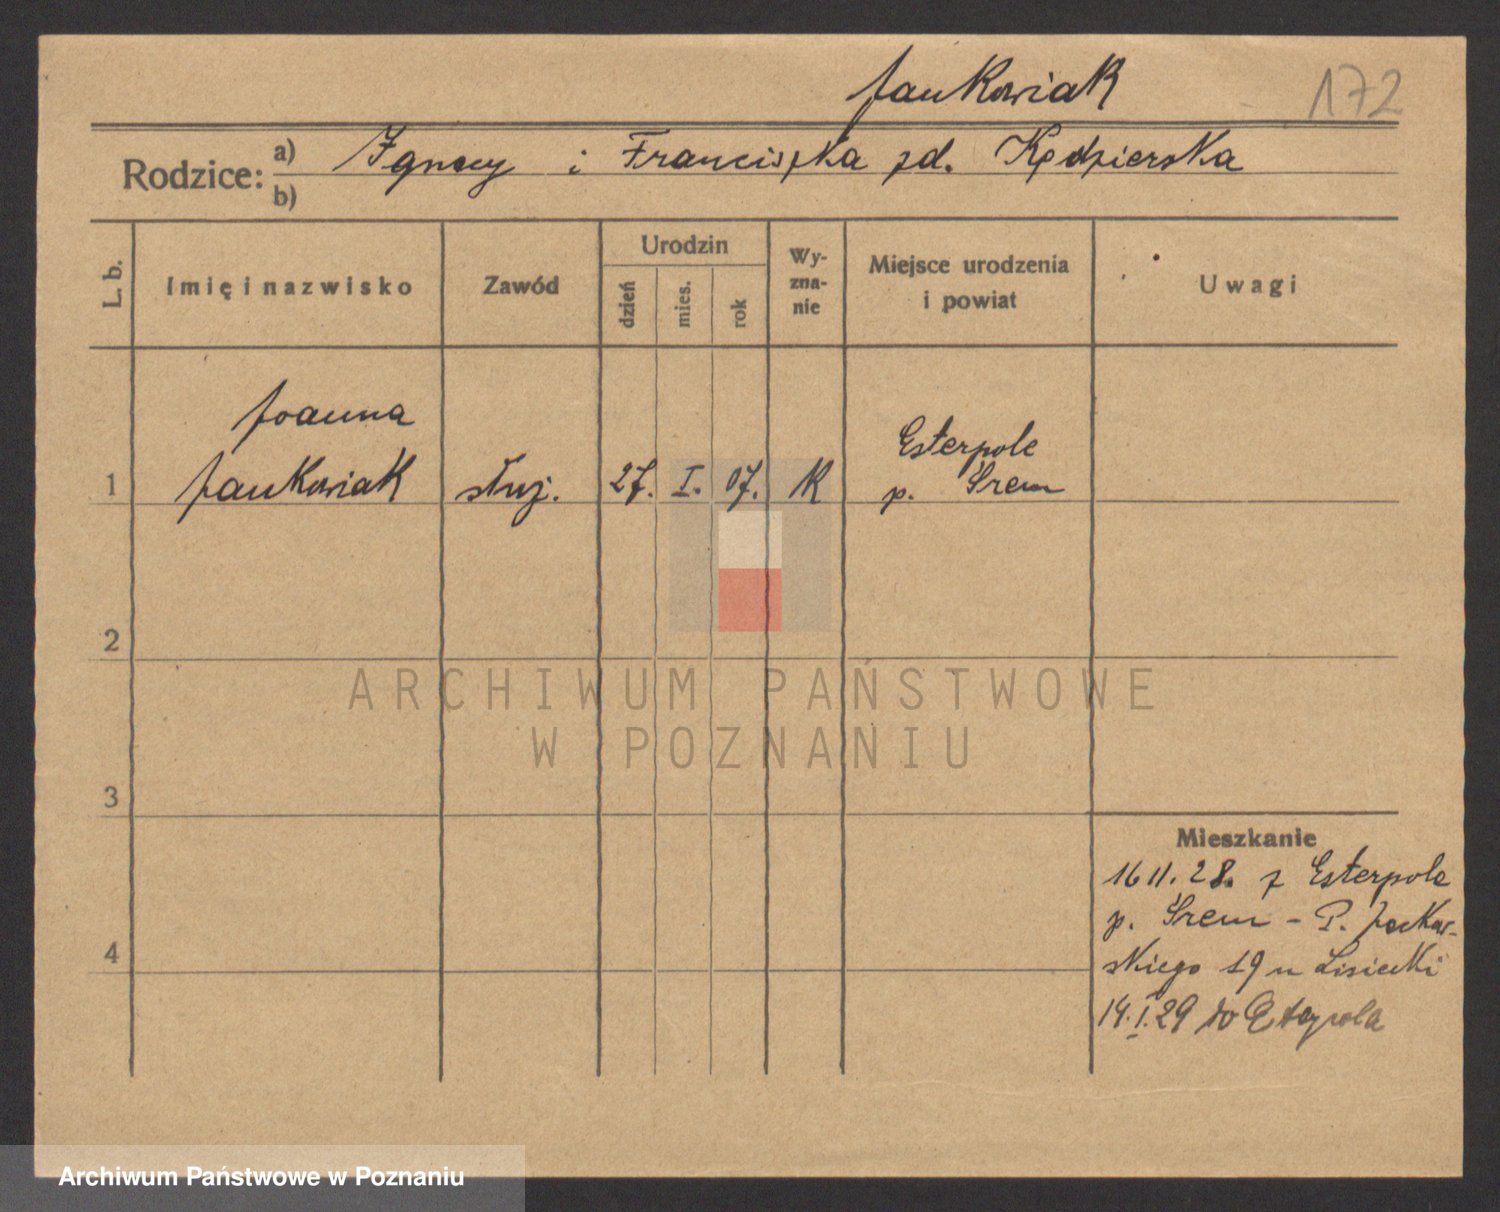 Jankowiak
172
Rodzice: a) Ignacy i Franciszka zd. Kędzierska
b)
L. b.
Imię i nazwisko
Zawód
Urodzin
dzień
mies.
rok
Wy-
zna-
nie
Miejsce urodzenia
i powiat
Uwagi
Joanna
Esterpole
1 Jankowiak służ. 27. I. 07. K p. Śrem
2
ARCHIWUM PAŃSTWOWE
W POZNANIU
3
Mieszkanie
16 11. 28. z Esterpole
p. Śrem - P.
skiego 19 u Lisiecki
4
14. I. 29 do
Archiwum Państwowe w Poznaniu